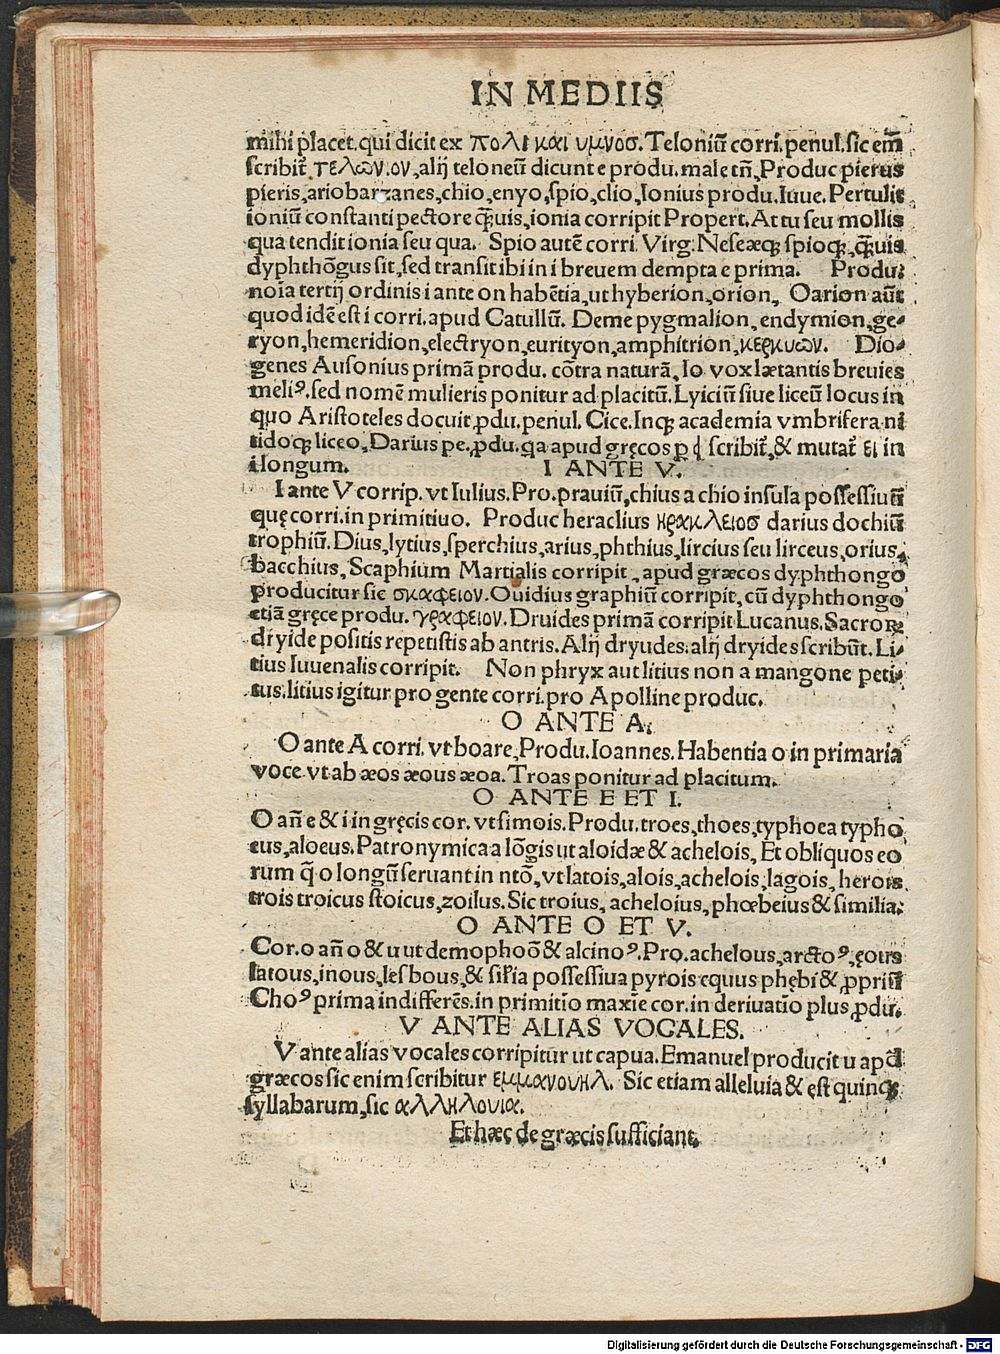 IN MEDIIS
mihi placet. qui dicit ex πολι και υμνοσ. Teloniū corri. penul. sic em̄
scribit̄ τελων.ον, alij teloneū dicunt e produ. male tn̄, Produc pierus
pieris, ariobarzanes, chio, enyo, spio, clio, Ionius produ. Iuue. Pertulit
ioniū constanti pectore q̄uis, ionia corripit Propert. At tu seu mollis
qua tendit ionia seu qua. Spio autē corri. Virg. Neseæq; spioq;, q̄uis
dyphthōgus sit, sed transit ibi in i breuem dempta e prima. Produ.
noīa tertij ordinis i ante on habētia, ut hyberion, orion, Oarion aūt
quod idē est i corri. apud Catullū. Deme pygmalion, endymion, ge-
ryon, hemeridion, electryon, eurityon, amphitrion, κερκυων. Dio-
genes Ausonius primā produ. cōtra naturā, Io vox lætantis breuies
meliꝰ, sed nomē mulieris ponitur ad placitū. Lyiciū siue liceū locus in
quo Aristoteles docuit, ꝓdu. penul. Cice. Inq; academia vmbrifera ni
tidoq; liceo, Darius pe, ꝓdu. qa apud gręcos ꝑ ει scribit̄, & mutat̄ ει in
i longum. I ANTE V.
I ante V corrip. vt Iulius. Pro. prauiū, chius a chio insula possessiuū
quę corri. in primitiuo. Produc heraclius ηρακλειοσ darius dochiū
trophiū. Dius, lytius, sperchius, arius, phthius, lircius seu lirceus, orius,
bacchius, Scaphium Martialis corripit, apud græcos dyphthongo
producitur sic σκαφειον. Ouidius graphiū corripit, cū dyphthongo
etiā gręce produ. γραφειον. Druides primā corripit Lucanus. Sacroꝝ
dryide positis repetistis ab antris. Alij dryudes: alij dryides scribūt. Li-
tius Iuuenalis corripit. Non phryx aut litius non a mangone peti-
tus: litius igitur pro gente corri. pro Apolline produc.
O ANTE A.
O ante A corri. vt boare, Produ. Ioannes. Habentia o in primaria
voce vt ab æos æous æoa. Troas ponitur ad placitum.
O ANTE E ET I.
O añ e & i in gręcis cor. vt simois. Produ. troes, thoes, typhoea typho
eus, aloeus. Patronymica a lōgis ut aloidæ & achelois, Et obliquos eo
rum q̄ o longū seruant in ntō, vt latois, alois, achelois, lagois, herois
trois troicus stoicus, zoilus. Sic troius, acheloius, phœbeius & similia.
O ANTE O ET V.
Cor. o añ o & u ut demophoō & alcinoꝰ. Pro. achelous, arctoꝰ, ęous
latous, inous, lesbous, & sil'ia possessiua pyrois equus phębi & ꝓpriū
Choꝰ prima indifferēs. in primitīo maxīe cor. in deriuatīo plus, ꝓdu.
V ANTE ALIAS VOCALES.
V ante alias vocales corripitur ut capua. Emanuel producit u apd̄
græcos sic enim scribitur εμμανουηλ. Sic etiam alleluia & est quinq;
syllabarum, sic αλληλουια.
Et hæc de græcis sufficiant.
Digitalisierung gefördert durch die Deutsche Forschungsgemeinschaft - DFG